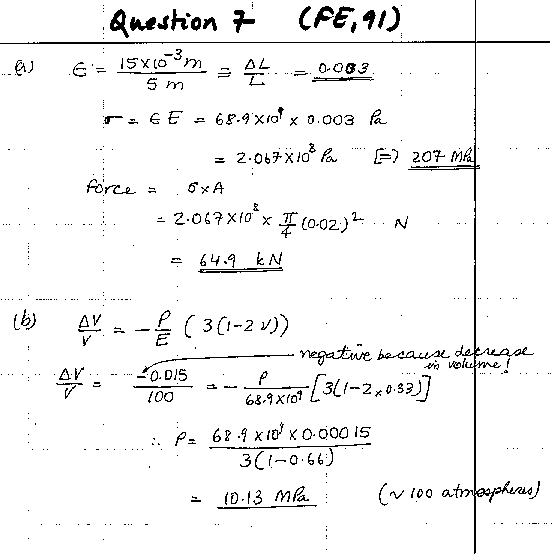 Question 7 (FE, 91)
(a) ε = 15×10⁻³ m / 5 m = ΔL / L = 0.003
σ = ε E = 68.9×10⁹ × 0.003 Pa
= 2.067×10⁸ Pa (=) 207 MPa
Force = σ×A
= 2.067×10⁸ × π/4 (0.02)² N
= 64.9 kN
(b) ΔV / V = − P / E ( 3(1-2ν))
negative because decrease
in volume!
ΔV / V = −0.015 / 100 = − P / 68.9×10⁹ [3(1−2×0.33)]
∴ P = 68.9×10⁹ × 0.00015 / 3(1−0.66)
= 10.13 MPa (~ 100 atmospheres)